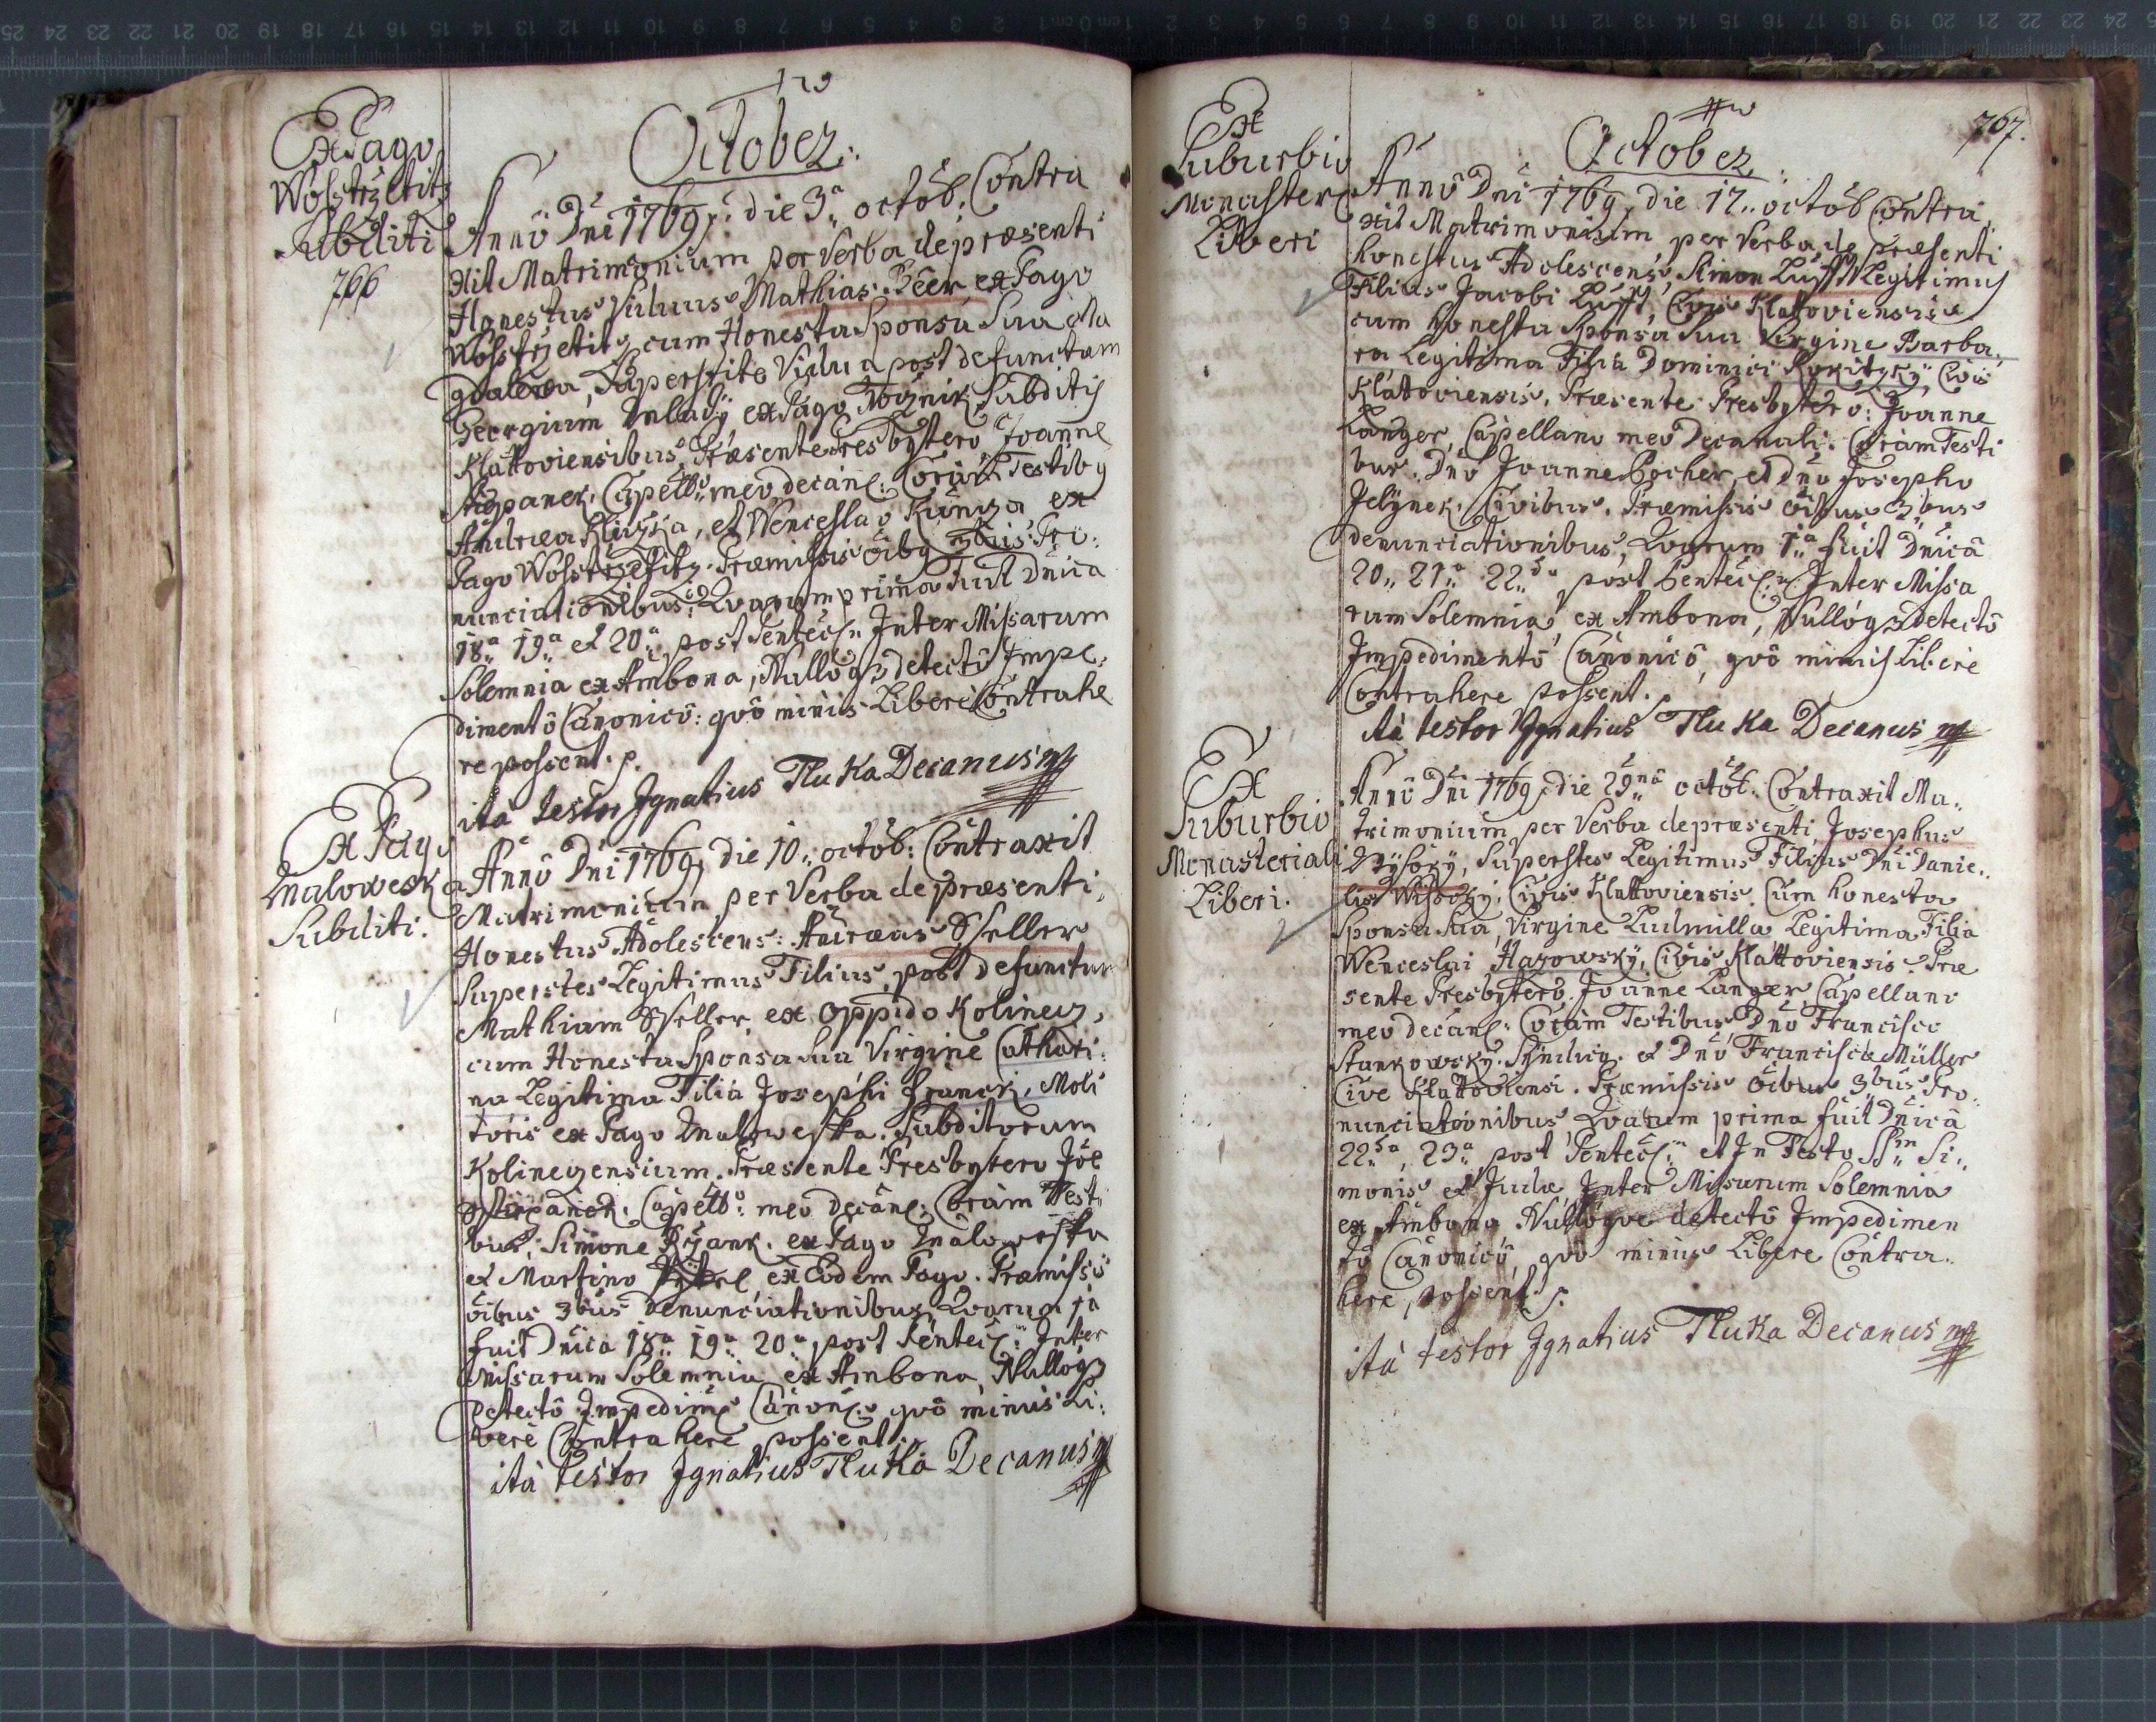 Ex Pago
Subditi
766
October
Annô Dni 1769 die 3a octob: Contra
xit Matrimonium per Verba de præsenti
Honestus Viduus Mathias Beer ex Pago
cum Honesta Sponsa Sua Ma
gdalena, Superstite Vidua post defunctum
Georgium Mladÿ ex Pago Subditis
Klattoviensibus. Præsente Presbytero Joanne
Capello meo decanl: Coram Testiby
Andrea et Wenceslao ex
Pago Præmissis oiby 3bus
nunciationibus: Quarum prima Fuit Dnica
18a 19a et 20a post Pentec: Inter Missarum
Solemnia ex Ambona, Nullóq3 detectô Impe,
dimentô Canonicô: quô minùs Liberè Contrahe
re possent.
ità testor Ignatius Tluka Decanus mp
Ex Pago
Maloweska
Subditi.
Annô Dni 1769, die 10 octob: Contraxit
Matrimonium per Verba de præsenti,
Honestus Adolescens: Andræas Sseller
Superstes Legitimus Filius, post defunctum
Mathiam Sseller ex oppido Kolinecz,
cum Honesta Sponsa Sua Virgine Cathari:
na Legitima Filia Josephi Moli
toris ex Pago Maloweska. Subditorum
Kolineczensium. Præsente Presbytero Joe
Capello: meo decanl: Coràm Testi
bus, Simone ex Pago Maloweska
et Martino ex Eodem Pago. Præmissis
oibus 3bus Denunciationibus Quarum 1a
fuit Dnica 18a 19a 20a post Pentec: Inter
Missarum Solemnia ex Ambona, Nullóq3
Detectô Impedim: Canon: quô minùs Li:
berè Contrahere possent.
ità testor Ignatius Tluka Decanus mp
Ex
Suburbio
Monaster
Liberi
October
767.
Annô Dni 1769, die 17 octob Contra,
xit Matrimonium per Verba de præsenti
honestus Adolescens, Simon Lufft Legitimus
Filius Jacobi Lufft, Civis Klattoviensis,
cum honesta Sponsa Sua Virgine Barba,
ra Legitima Filia Dominici Civis
Klattoviensis, Præsente Presbytero: Joanne
Langer, Capellano meo Decanali. Coràm Testi
bus. Dno Joanne et Dno Josepho
Jelÿnek, Civibus. Præmissis oibus 3bus
denunciationibus, Quarum 1a fuit Dnicâ
20 21a 22da post Pentec: Inter Missa
rum Solemnia ex Ambona, Nullóq3 detectô
Impedimentô Canonicô, quô minus Liberè
Contrahere possent.
ità testor Ignatius Tluka Decanus mp
Ex
Suburbio
Monasteriali
Liberi.
Annô Dni 1769, die 29nâ octob: Contraxit Ma..
trimonium per Verba de præsenti, Josephus
Superstes Legitimus Filius Dni Danie..
lis Civis Klattoviensis. Cum honesta
Sponsa Sua, Virgine Ludmilla Legitima Filia
Wenceslai Hazowsky, Civis Klattoviensis. Præ
sente Presbytero. Joanne Langer Capellano
meo decanl: Coràm Testibus Dno Francisco
Stankowsky. Syndico. et Dno Francisco Müller
Cive Klattoviensi. Præmissis oibus 3bus Pro
nunciationibus, Quarum prima fuit Dnicâ
22da, 23a post Pentec: et In Festo SSm Si..
monis et Judæ Inter Missarum Solemnia
ex Ambona Nullóque detectô Impedimen
tô Canonicô, quo minus Liberè Contra..
here possent.
ità testor Ignatius Tluka Decanus mp